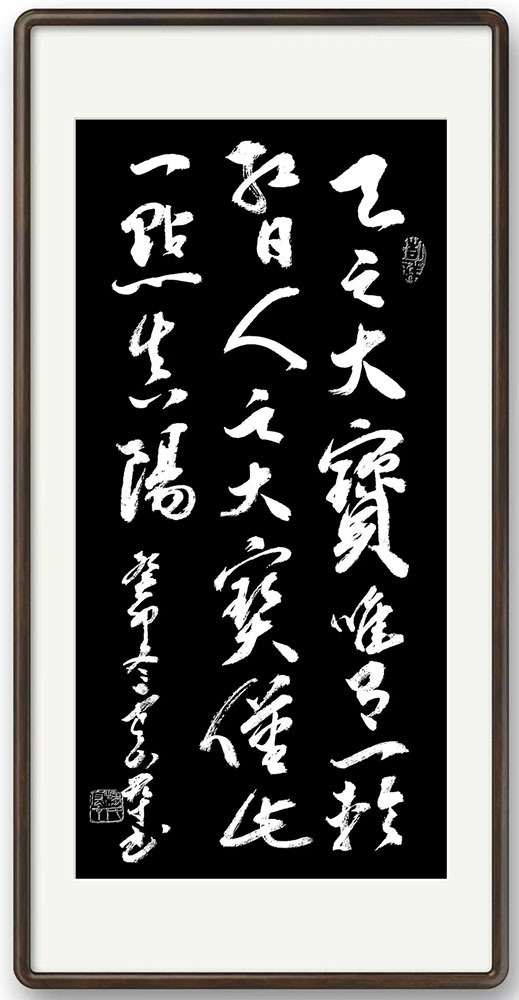 天之大寶唯有一輪
紅日人之大寶僅此
一點真陽
癸卯冬